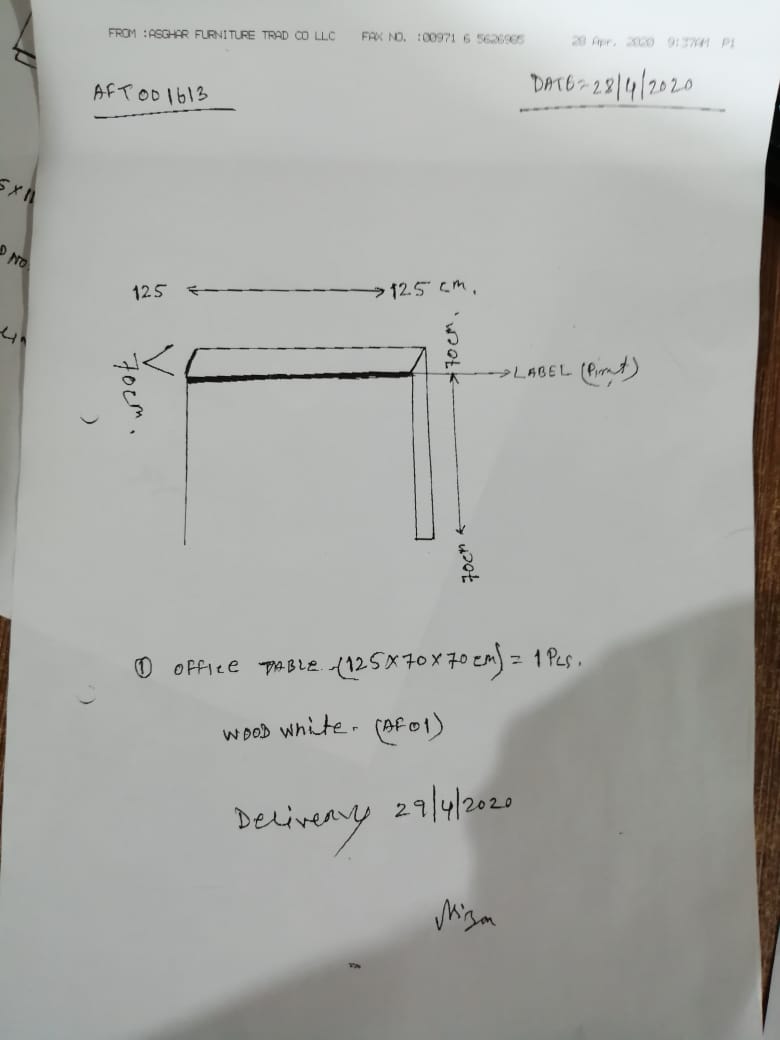 FROM :ASGHAR FURNITURE TRAD CO LLC FAX NO. :00971 6 5626985 28 Apr. 2020 9:37AM P1
AFT001613
DATE=28/4/2020
125 125 cm.
70cm.
70cm.
LABEL (Print)
70cm
① OFFICE TABLE (125X70X70cm) = 1 Pcs.
WOOD white. (AF01)
Delivery 29/4/2020